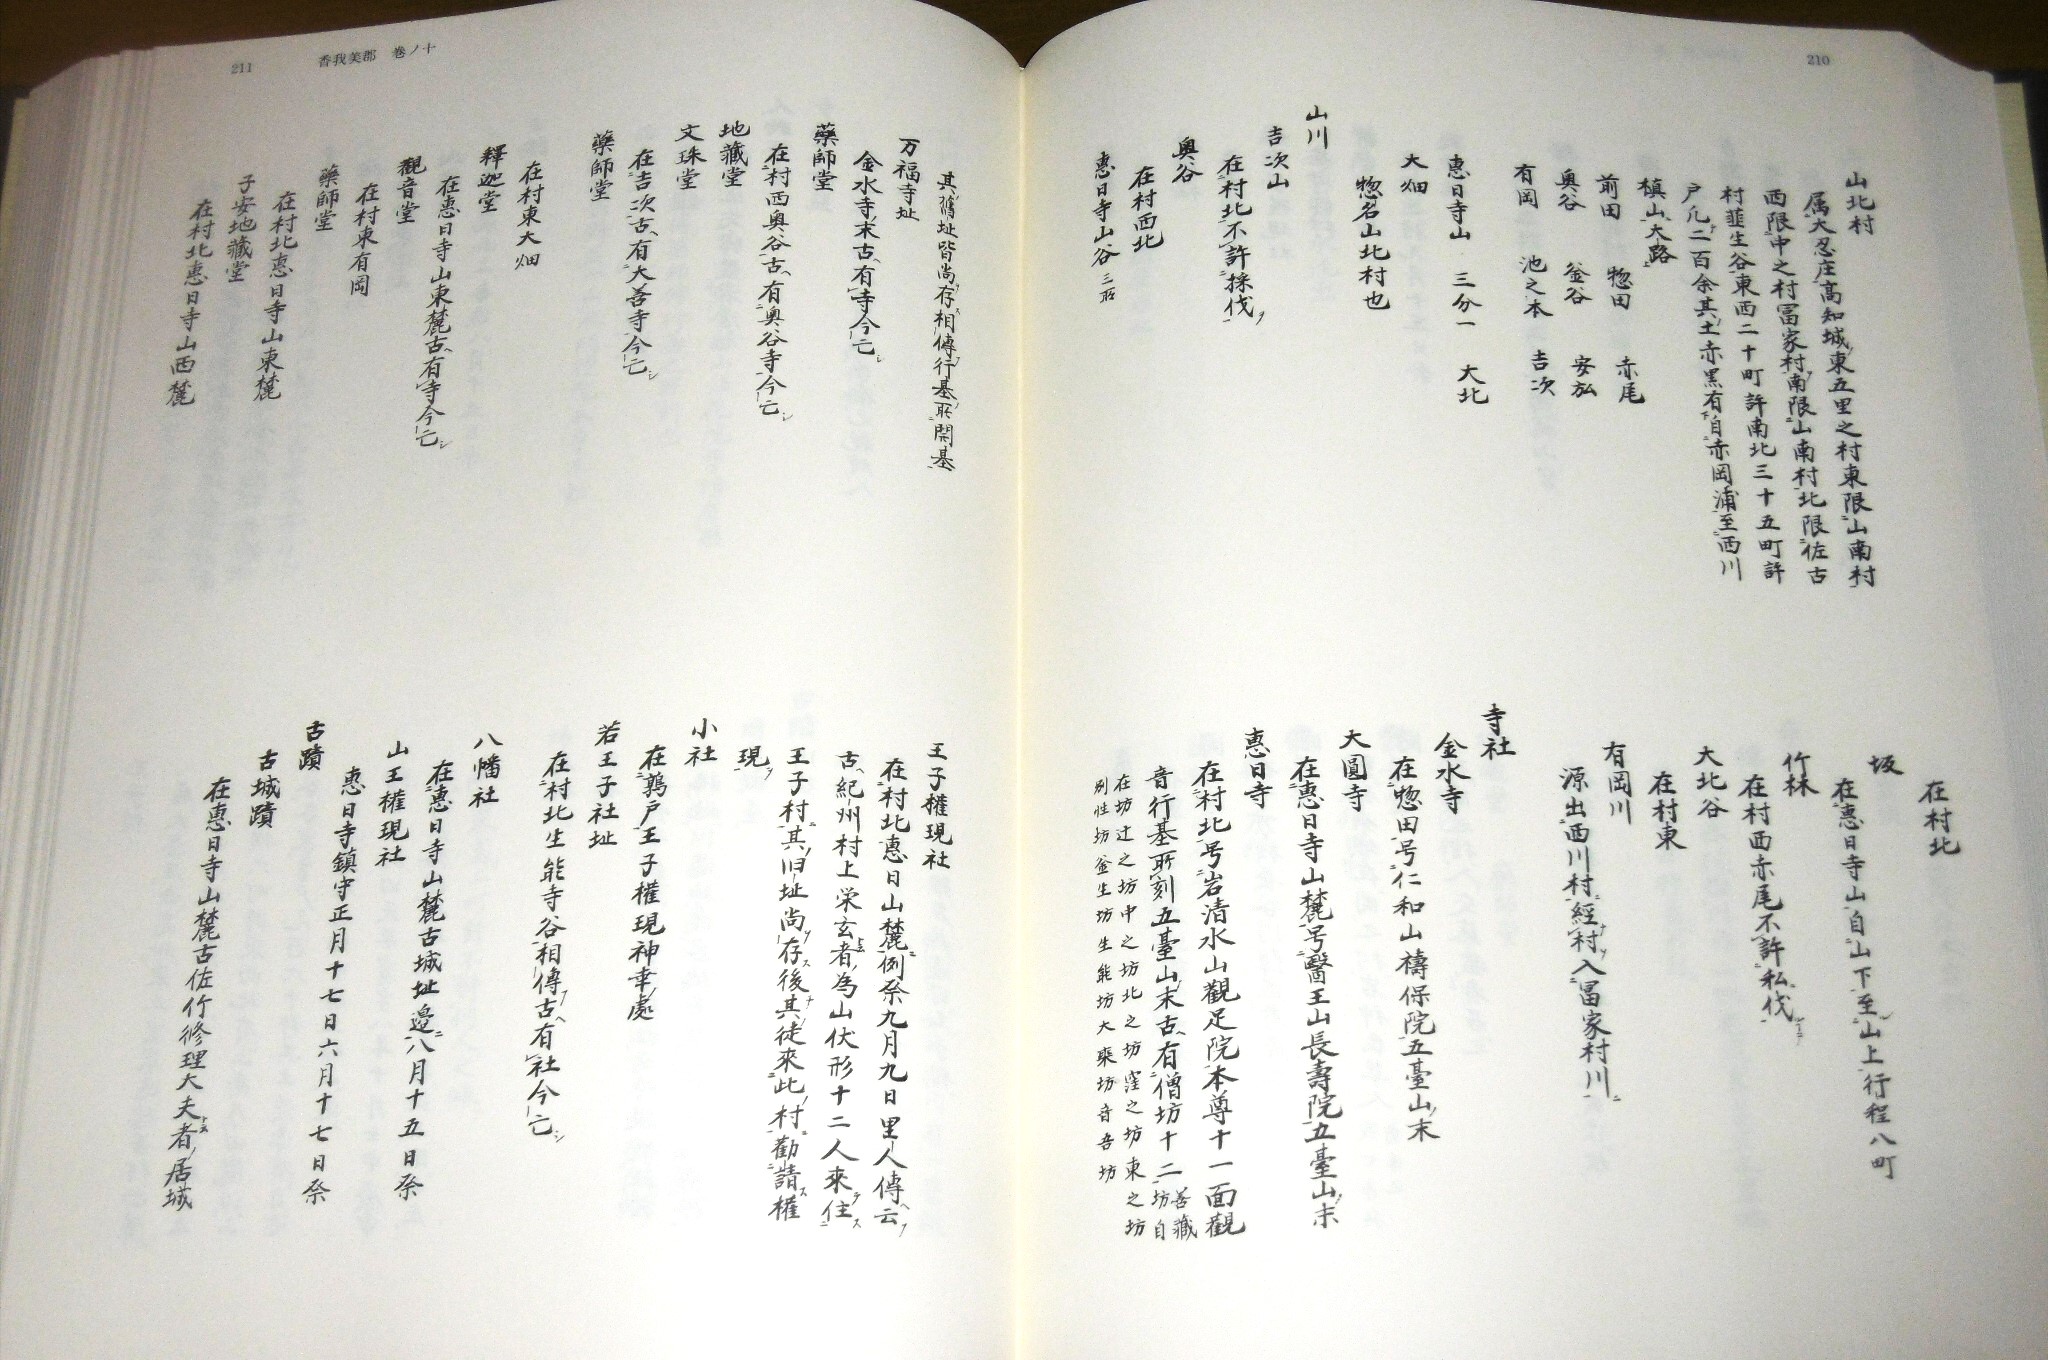 210
山北村
属大忍庄高知城東五里之村東限山南村
西限中之村冨家村南限山南村北限佐古
村韮生谷東西二十町許南北三十五町許
戸凡二百余其土赤黒有自赤岡浦至西川
槙山大路
前田 惣田 赤尾
奥谷 釜谷 安弘
有岡 池之本 吉次
惠日寺山 三分一 大北
大畑
惣名山北村也
山川
吉次山
在村北不許採伐
奥谷
在村西北
惠日寺山谷 三所
在村北
坂
在惠日寺山自山下至山上行程八町
竹林
在村西赤尾不許私伐
大北谷
在村東
有岡川
源出西川村経村入冨家村川
寺社
金水寺
在惣田号仁和山禱保院五臺山末
大圓寺
在惠日寺山麓号醫王山長壽院五臺山末
惠日寺
在村北号岩清水山觀足院本尊十一面觀
音行基所刻五臺山末古有僧坊十二 善藏坊自
在坊辻之坊中之坊北之坊窪之坊東之坊
別性坊釜生坊生能坊大乘坊音吾坊
211
香我美郡 巻ノ十
其舊址皆尚存相傳行基所開基
万福寺址
金水寺末古有寺今亡
藥師堂
在村西奥谷古有奥谷寺今亡
地藏堂
文珠堂
在吉次古有大善寺今亡
藥師堂
在村東大畑
釋迦堂
在惠日寺山東麓古有寺今亡
觀音堂
在村東有岡
藥師堂
在村北惠日寺山東麓
子安地藏堂
在村北惠日寺山西麓
王子權現社
在村北惠日山麓例祭九月九日里人傳云
古紀州村上栄玄者為山伏形十二人來住
王子村其旧址尚存後其徒來此村勸請權
現
小社
在鶉戸王子權現神幸處
若王子社址
在村北生能寺谷相傳古有社今亡
八幡社
在惠日寺山麓古城址邊八月十五日祭
山王權現社
惠日寺鎮守正月十七日六月十七日祭
古蹟
古城蹟
在惠日寺山麓古佐竹修理大夫者居城